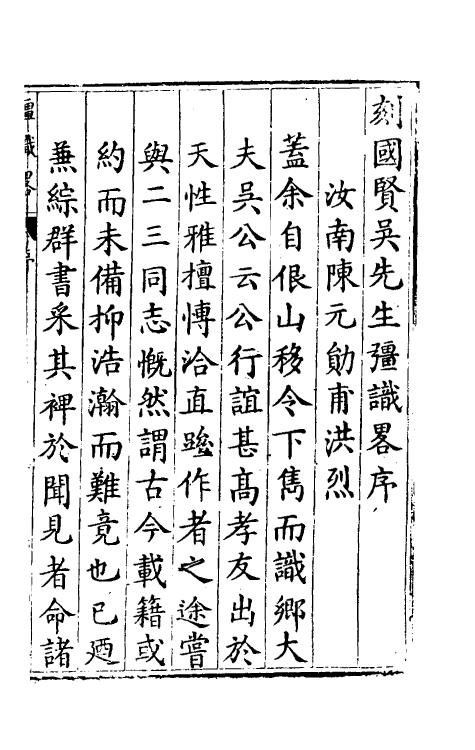 刻國賢吳先生彊識畧序
汝南陳元勛甫洪烈
蓋余自佷山移令下雋而識鄉大
夫吳公云公行誼甚高孝友出於
天性雅擅慱洽直躋作者之途嘗
與二三同志慨然謂古今載籍或
約而未備抑浩瀚而難竟也已廼
蒹綜群書采其裨於聞見者命諸
彊識畧
序